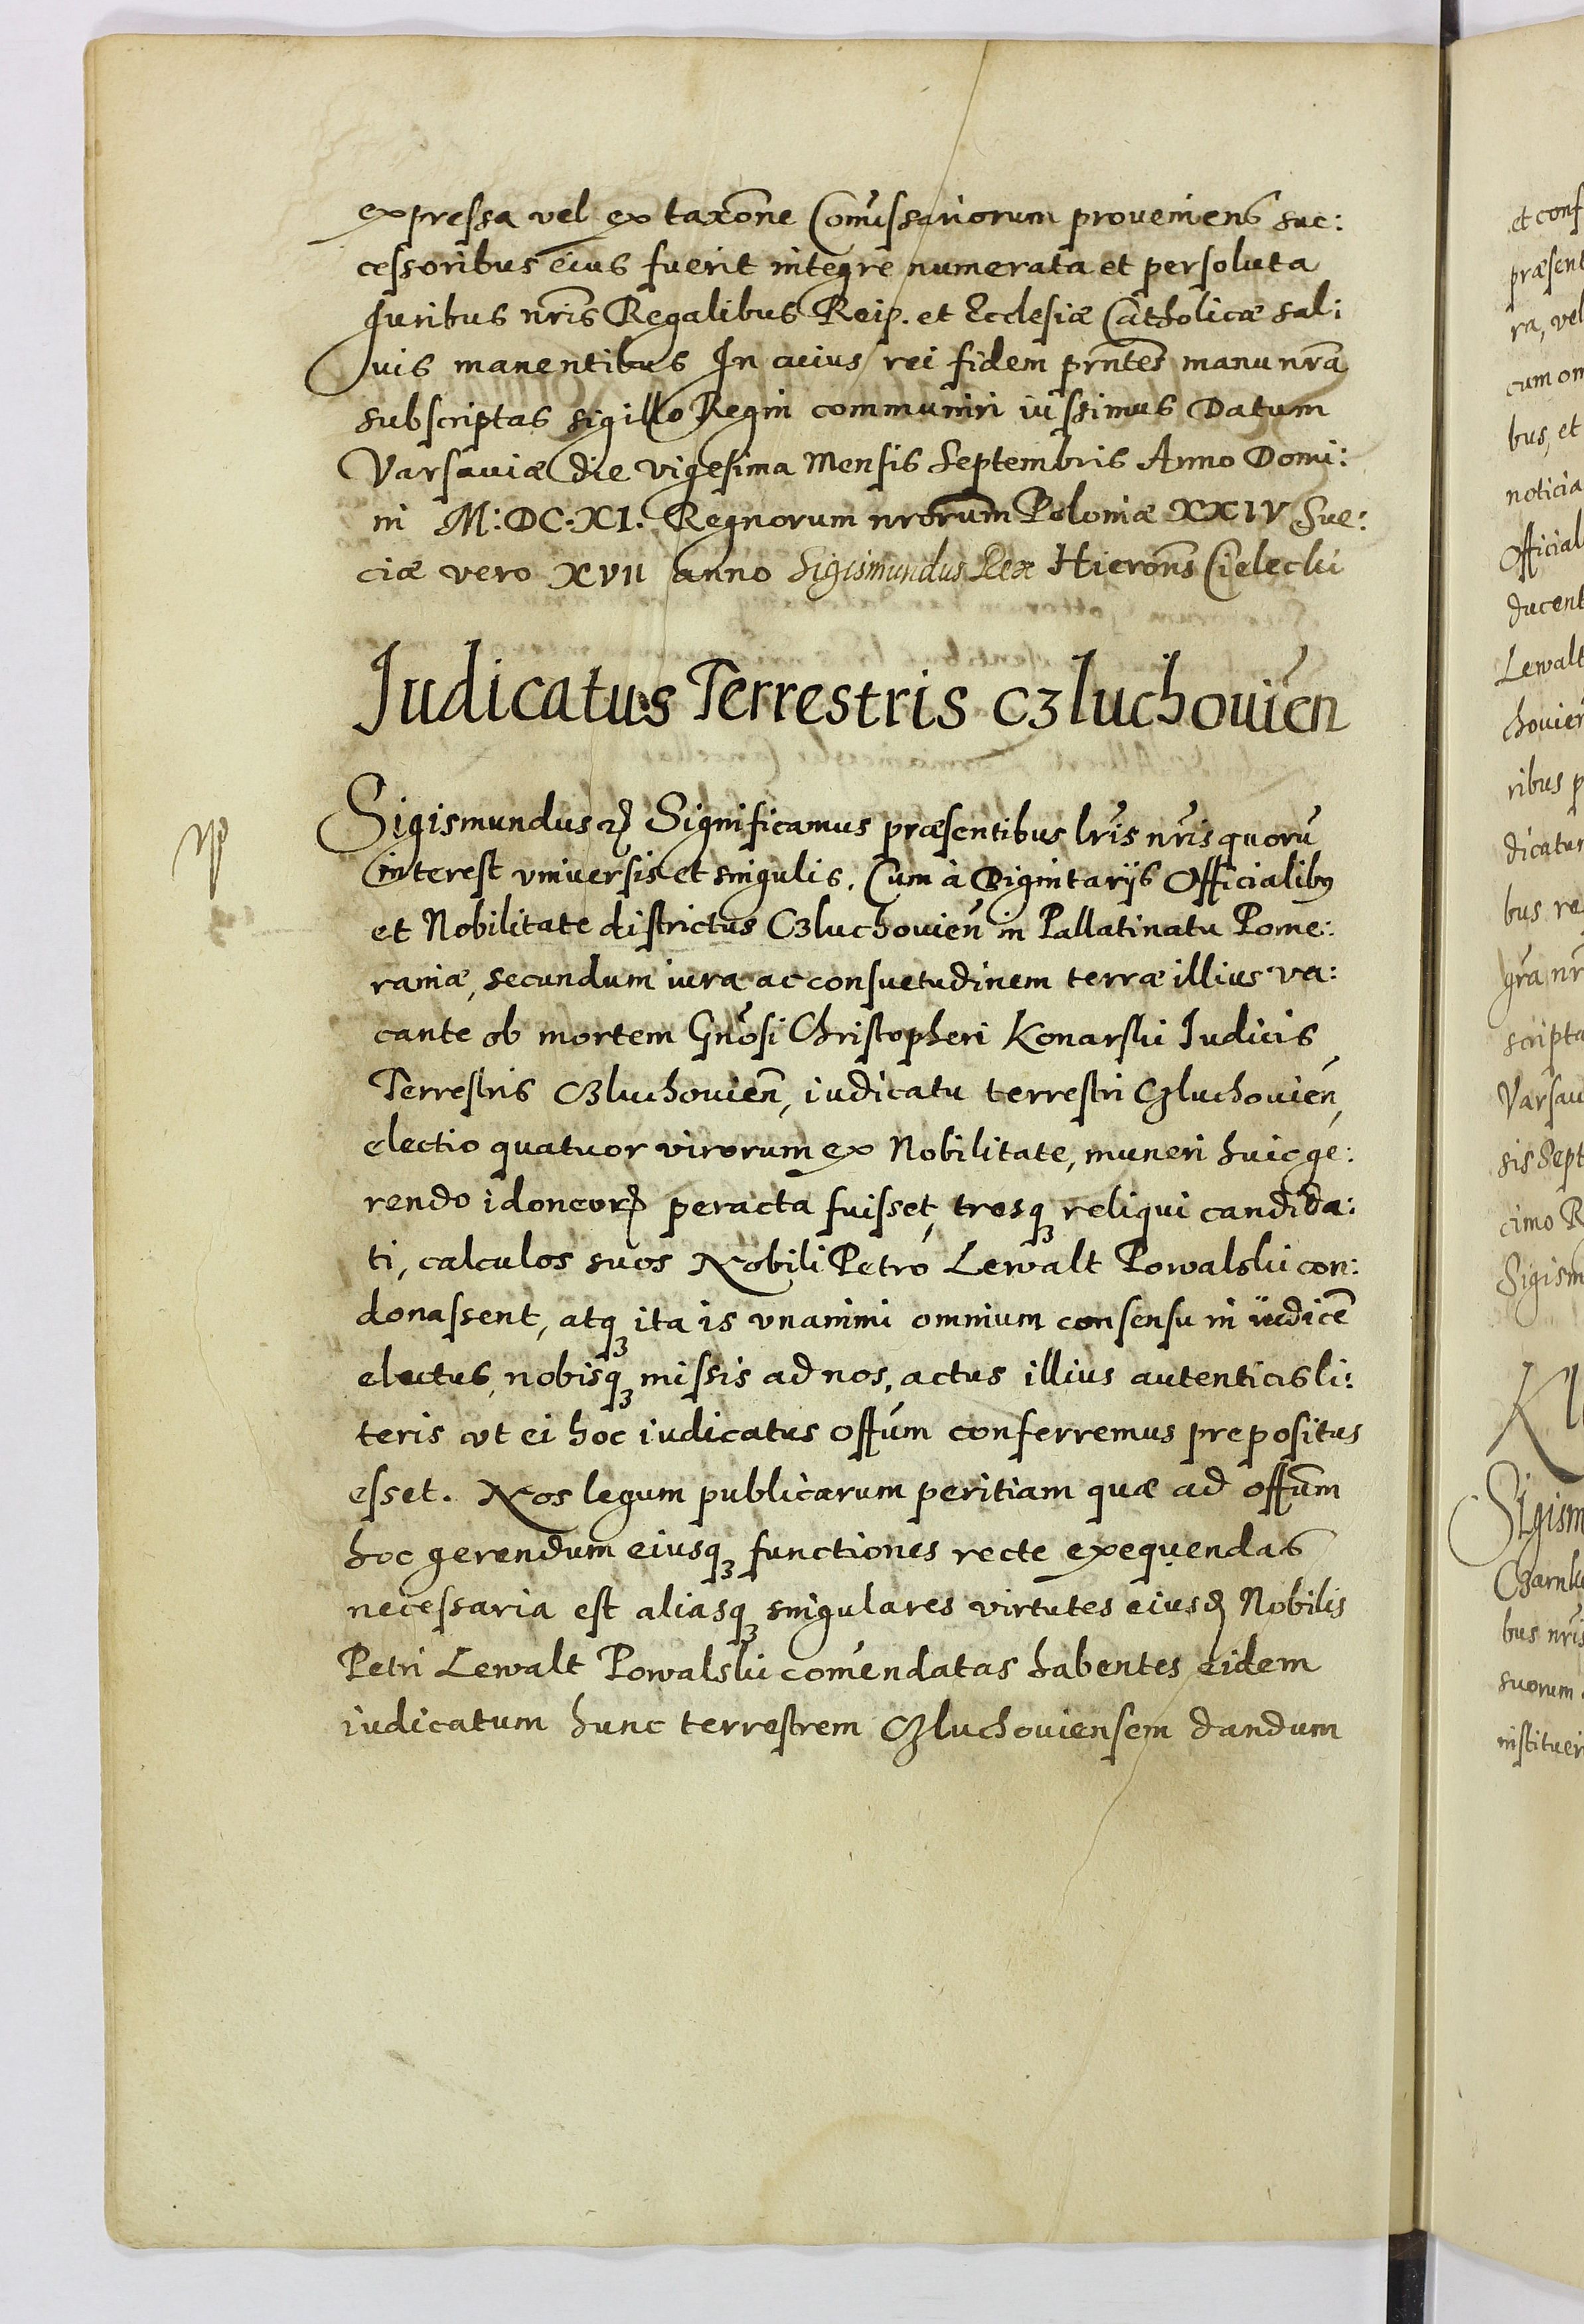 expressa vel ex taxõne Comissariorum proveniens suc:
cessoribus eius fuerit integre numerata et persoluta
Iuribus nr̃is Regalibus Reip. et Ecclesiæ Catholicæ sal:
uis manentibus In cuius rei fidem pr̃ntes manu nr̃a
subscriptas sigillo Regni communiri iussimus Datum
Varsauiæ die vigesima Mensis Septembris Anno Domi:
ni M:DC:XI. Regnorum nrorum Poloniæ XXIV Sue:
ciæ vero XVII anno Sigismundus Rex Hierõns Cielecki
Iudicatus Terrestris Czluchouień
Sigismundus ꝛc Significamus præsentibus lr̃is nr̃is quorũ
interest vniuersis et singulis. Cum à Dignitarijs Officialibꝰ
et Nobilitate districtus Czluchouień in Pallatinatu Pome:
raniæ, secundum iura ac consuetudinem terræ illius va:
cante ob mortem Gñosi Christopheri Konarski Iudicis
Terrestris Czluchouień, iudicatu terrestri Czluchouień,
electio quatuor virorum ex Nobilitate, muneri huic ge:
rendo idoneorꝝ peracta fuisset, tresqꝫ reliqui candida:
ti, calculos suos Nobili Petro Lewalt Powalski con:
donassent, atqꝫ ita is vnanimi omnium consensu in iudicẽ
electus, nobisqꝫ missis ad nos, actus illius autenticis li:
teris vt ei hoc iudicatus offũm conferremus prepositus
esset. Nos legum publicarum peritiam quæ ad offũm
hoc gerendum eiusqꝫ functiones recte exequendas
necessaria est aliasqꝫ singulares virtutes eiusđ Nobilis
Petri Lewalt Powalski com̃endatas habentes eidem
iudicatum hunc terrestrem Czluchouiensem dandum
et conf
præsent
ra, vel
cum om
bus, et
noticia
Official
ducent
Lewalt
chouień
ribus p
dicatur
bus re
gr̃a nr̃
scripta
Varsau
sis Sept
cimo R
Sigism
Sigism
Czarnk
bus nr̃is
suorum
instituer